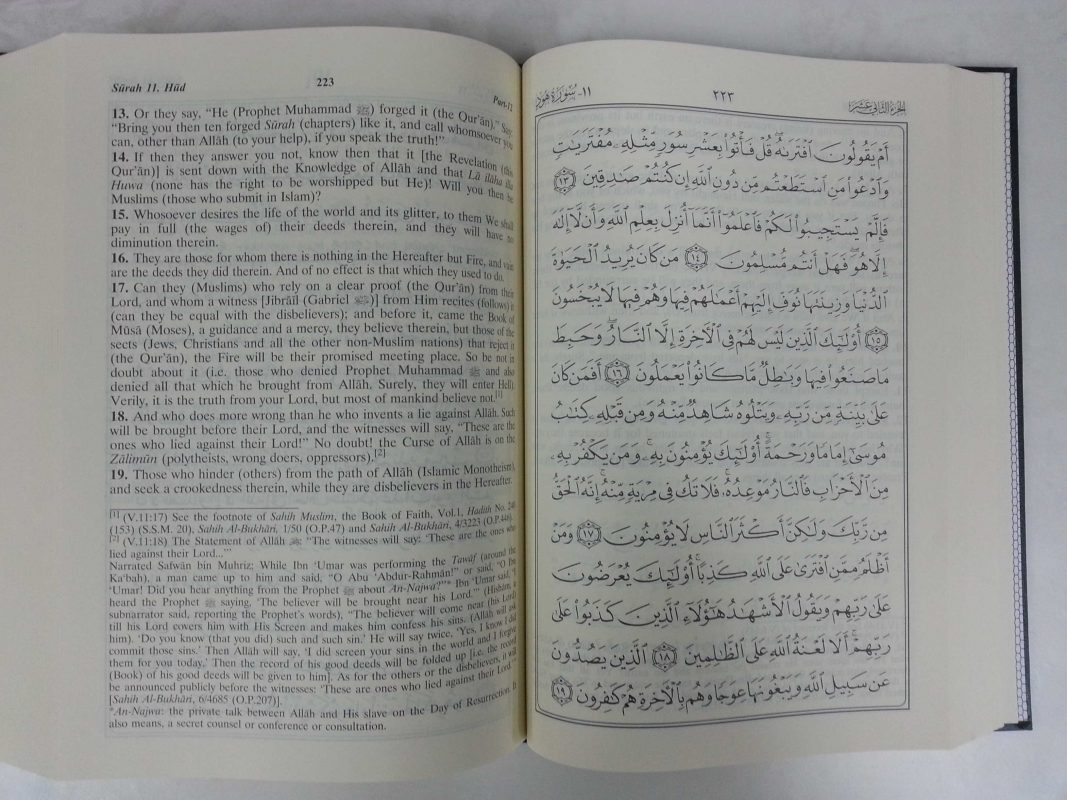 Sūrah 11. Hūd
223
Part-12
13. Or they say, "He (Prophet Muhammad ﷺ) forged it (the Qur'ān)." Say:
"Bring you then ten forged Sūrah (chapters) like it, and call whomsoever you
can, other than Allāh (to your help), if you speak the truth!"
14. If then they answer you not, know then that it [the Revelation (this
Qur'ān)] is sent down with the Knowledge of Allāh and that Lā ilāha illa
Huwa (none has the right to be worshipped but He)! Will you then be
Muslims (those who submit in Islam)?
15. Whosoever desires the life of the world and its glitter, to them We shall
pay in full (the wages of) their deeds therein, and they will have no
diminution therein.
16. They are those for whom there is nothing in the Hereafter but Fire, and vain
are the deeds they did therein. And of no effect is that which they used to do.
17. Can they (Muslims) who rely on a clear proof (the Qur'ān) from their
Lord, and whom a witness [Jibrāīl (Gabriel ﷺ)] from Him recites (follows) it
(can they be equal with the disbelievers); and before it, came the Book of
Mūsā (Moses), a guidance and a mercy, they believe therein, but those of the
sects (Jews, Christians and all the other non-Muslim nations) that reject it
(the Qur'ān), the Fire will be their promised meeting place. So be not in
doubt about it (i.e. those who denied Prophet Muhammad ﷺ and also
denied all that which he brought from Allāh. Surely, they will enter Hell).
Verily, it is the truth from your Lord, but most of mankind believe not.[1]
18. And who does more wrong than he who invents a lie against Allāh. Such
will be brought before their Lord, and the witnesses will say, "These are the
ones who lied against their Lord!" No doubt! the Curse of Allāh is on the
Zālimūn (polytheists, wrong doers, oppressors).[2]
19. Those who hinder (others) from the path of Allāh (Islamic Monotheism),
and seek a crookedness therein, while they are disbelievers in the Hereafter.
[1] (V.11:17) See the footnote of Sahih Muslim, the Book of Faith, Vol.1, Hadith No. 240
(153) (S.S.M. 20), Sahih Al-Bukhâri, 1/50 (O.P.47) and Sahih Al-Bukhâri, 4/3223 (O.P.446).
[2] (V.11:18) The Statement of Allāh ﷻ: "The witnesses will say: 'These are the ones who
lied against their Lord...'"
Narrated Safwān bin Muhriz: While Ibn 'Umar was performing the Tawāf (around the
Ka'bah), a man came up to him and said, "O Abu 'Abdur-Rahmān!" or said, "O Ibn
'Umar! Did you hear anything from the Prophet ﷺ about An-Najwa?"* Ibn 'Umar said, "I
heard the Prophet ﷺ saying, 'The believer will be brought near his Lord.'" (Hishām, a
subnarrator said, reporting the Prophet's words), "The believer will come near (his Lord)
till his Lord covers him with His Screen and makes him confess his sins. (Allāh will ask
him). 'Do you know (that you did) such and such sin.' He will say twice, 'Yes, I know I did
commit those sins.' Then Allāh will say, 'I did screen your sins in the world and I forgive
them for you today.' Then the record of his good deeds will be folded up [i.e. the record
(Book) of his good deeds will be given to him]. As for the others or the disbelievers, it will
be announced publicly before the witnesses: 'These are ones who lied against their Lord.'"
[Sahih Al-Bukhâri, 6/4685 (O.P.207)].
*An-Najwa: the private talk between Allāh and His slave on the Day of Resurrection. It
also means, a secret counsel or conference or consultation.
الجزء الثاني عشر
٢٢٣
١١- سورة هود
أَمْ يَقُولُونَ ٱفْتَرَىٰهُ قُلْ فَأْتُوا۟ بِعَشْرِ سُوَرٍ مِّثْلِهِۦ مُفْتَرَيَٰتٍ
وَٱدْعُوا۟ مَنِ ٱسْتَطَعْتُم مِّن دُونِ ٱللَّهِ إِن كُنتُمْ صَٰدِقِينَ ١٣
فَإِلَّمْ يَسْتَجِيبُوا۟ لَكُمْ فَٱعْلَمُوٓا۟ أَنَّمَآ أُنزِلَ بِعِلْمِ ٱللَّهِ وَأَن لَّآ إِلَٰهَ
إِلَّا هُوَ فَهَلْ أَنتُم مُّسْلِمُونَ ١٤ مَن كَانَ يُرِيدُ ٱلْحَيَوٰةَ
ٱلدُّنْيَا وَزِينَتَهَا نُوَفِّ إِلَيْهِمْ أَعْمَٰلَهُمْ فِيهَا وَهُمْ فِيهَا لَا يُبْخَسُونَ
١٥ أُو۟لَٰٓئِكَ ٱلَّذِينَ لَيْسَ لَهُمْ فِى ٱلْءَاخِرَةِ إِلَّا ٱلنَّارُ وَحَبِطَ
مَا صَنَعُوا۟ فِيهَا وَبَٰطِلٌ مَّا كَانُوا۟ يَعْمَلُونَ ١٦ أَفَمَن كَانَ
عَلَىٰ بَيِّنَةٍ مِّن رَّبِّهِۦ وَيَتْلُوهُ شَاهِدٌ مِّنْهُ وَمِن قَبْلِهِۦ كِتَٰبُ
مُوسَىٰٓ إِمَامًا وَرَحْمَةً أُو۟لَٰٓئِكَ يُؤْمِنُونَ بِهِۦ وَمَن يَكْفُرْ بِهِۦ
مِنَ ٱلْأَحْزَابِ فَٱلنَّارُ مَوْعِدُهُۥ فَلَا تَكُ فِى مِرْيَةٍ مِّنْهُ إِنَّهُ ٱلْحَقُّ
مِن رَّبِّكَ وَلَٰكِنَّ أَكْثَرَ ٱلنَّاسِ لَا يُؤْمِنُونَ ١٧ وَمَنْ
أَظْلَمُ مِمَّنِ ٱفْتَرَىٰ عَلَى ٱللَّهِ كَذِبًا أُو۟لَٰٓئِكَ يُعْرَضُونَ
عَلَىٰ رَبِّهِمْ وَيَقُولُ ٱلْأَشْهَٰدُ هَٰٓؤُلَآءِ ٱلَّذِينَ كَذَبُوا۟ عَلَىٰ
رَبِّهِمْ أَلَا لَعْنَةُ ٱللَّهِ عَلَى ٱلظَّٰلِمِينَ ١٨ ٱلَّذِينَ يَصُدُّونَ
عَن سَبِيلِ ٱللَّهِ وَيَبْغُونَهَا عِوَجًا وَهُم بِٱلْءَاخِرَةِ هُمْ كَٰفِرُونَ ١٩